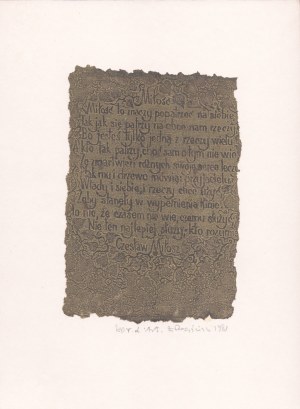 Miłość
Miłość to znaczy popatrzeć na siebie
Tak jak się patrzy na obce nam rzeczy
Bo jesteś tylko jedną z rzeczy wielu
A kto tak patrzy, choć sam o tym nie wie
Ze zmartwień różnych swoje serce leczy
Ptak mu i drzewo mówią: przyjacielu
Wtedy i siebie, i rzeczy chce użyć
Żeby stanęły w wypełnienia łunie
To nic, że czasem nie wie, czemu służyć
Nie ten najlepiej służy, kto rozumie
Czesław Miłosz